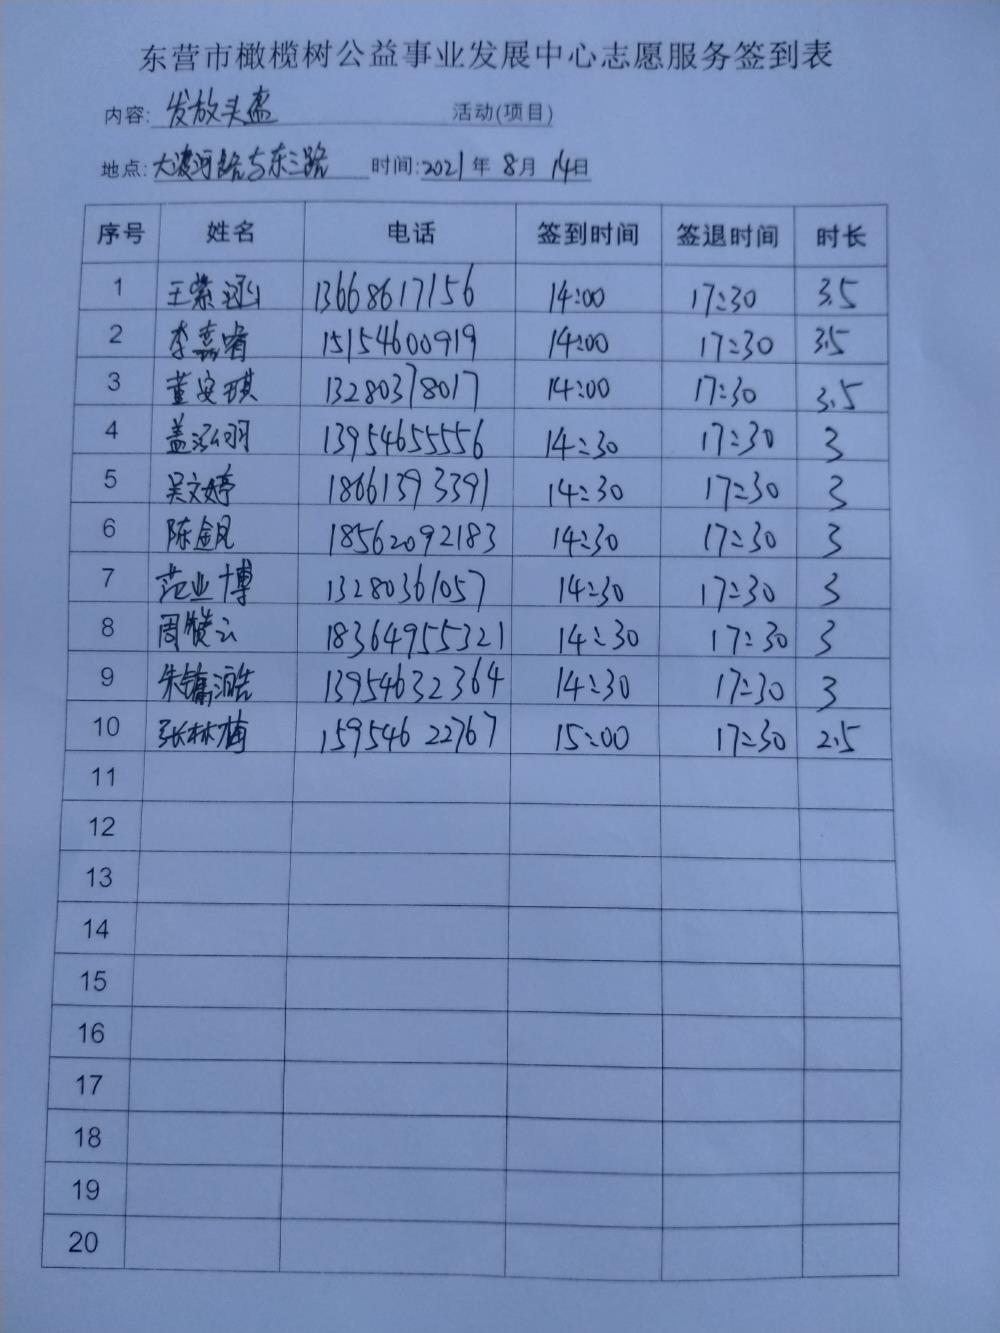 东营市橄榄树公益事业发展中心志愿服务签到表
内容: 发放头盔 活动(项目)
地点: 大渡河路与东三路 时间: 2021 年 8 月 14 日
序号 姓名 电话 签到时间 签退时间 时长
1 王紫涵 13668617156 14:00 17:30 3.5
2 李嘉睿 15154600919 14:00 17:30 3.5
3 董安琪 13280378017 14:00 17:30 3.5
4 盖泓羽 13954655556 14:30 17:30 3
5 吴文婷 18661393391 14:30 17:30 3
6 陈金凤 18562092183 14:30 17:30 3
7 范业博 13280361057 14:30 17:30 3
8 周赞云 18364955321 14:30 17:30 3
9 朱镛浩 13954632364 14:30 17:30 3
10 张林梅 15954622767 15:00 17:30 2.5
11
12
13
14
15
16
17
18
19
20